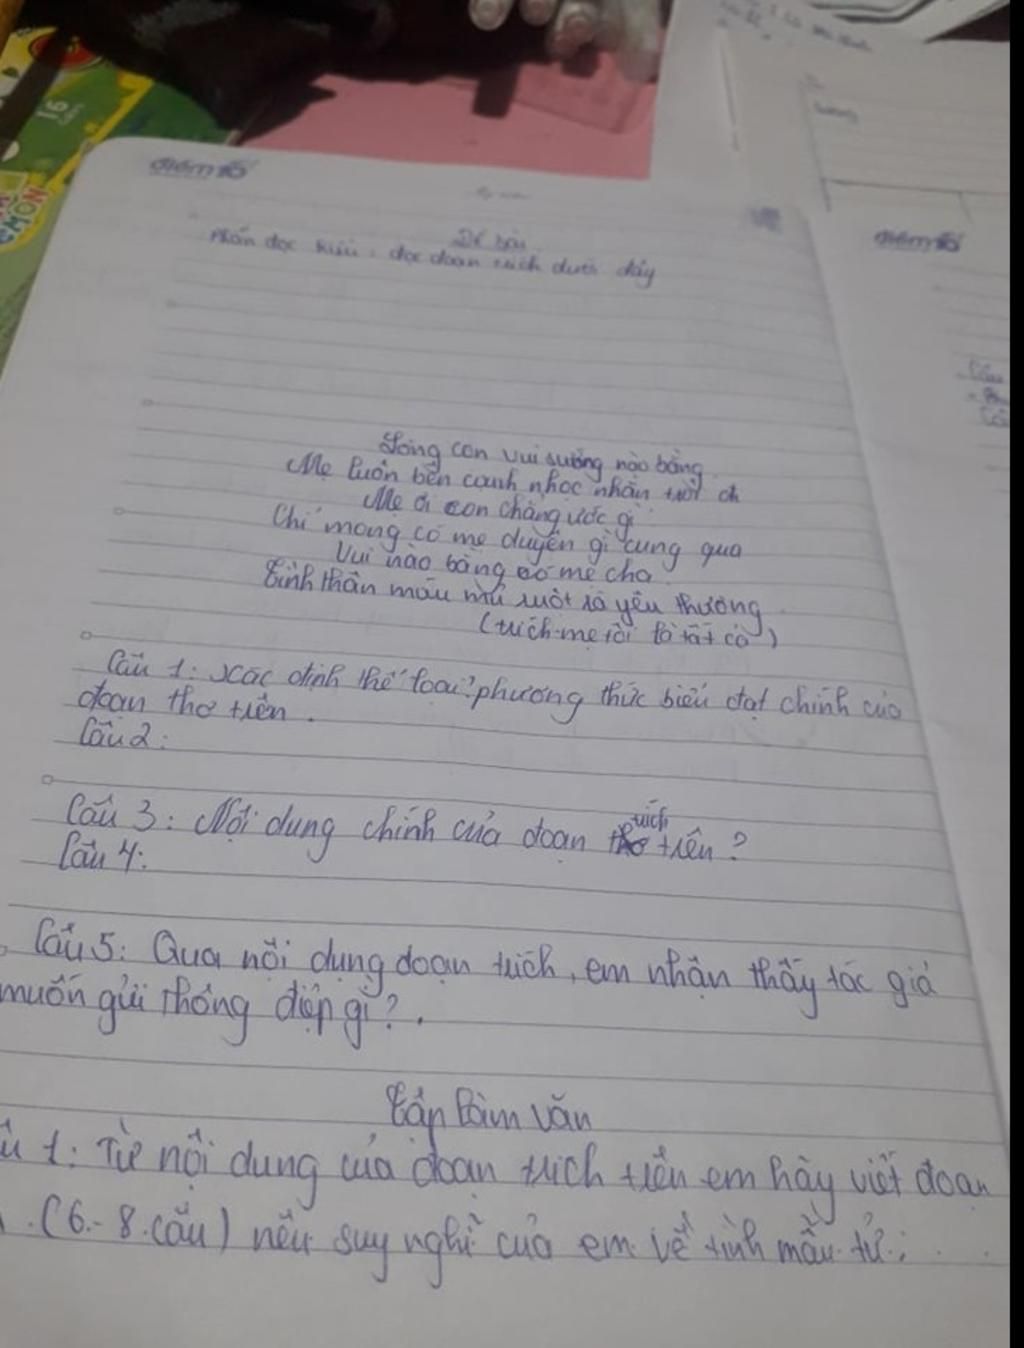 điểm số
Đề bài
Phần đọc hiểu: đọc đoạn trích dưới đây
điểm số
Lòng con vui sướng nào bằng
Mẹ luôn bên cạnh nhọc nhằn trôi đi
Mẹ ơi con chẳng ước gì
Chỉ mong có mẹ duyên gì cung qua
Vui nào bằng có mẹ cha
Tình thân máu mủ ruột rà yêu thương
(trích mẹ tôi là tất cả)
Câu 1: Xác định thể loại? phương thức biểu đạt chính của
đoạn thơ trên.
Câu 2:
Câu 3: Nội dung chính của đoạn trích trên?
Câu 4:
Câu 5: Qua nội dung đoạn trích, em nhận thấy tác giả
muốn gửi thông điệp gì?.
Tập làm văn
1: Từ nội dung của đoạn trích trên em hãy viết đoạn
(6-8 câu) nêu suy nghĩ của em về tình mẫu tử: